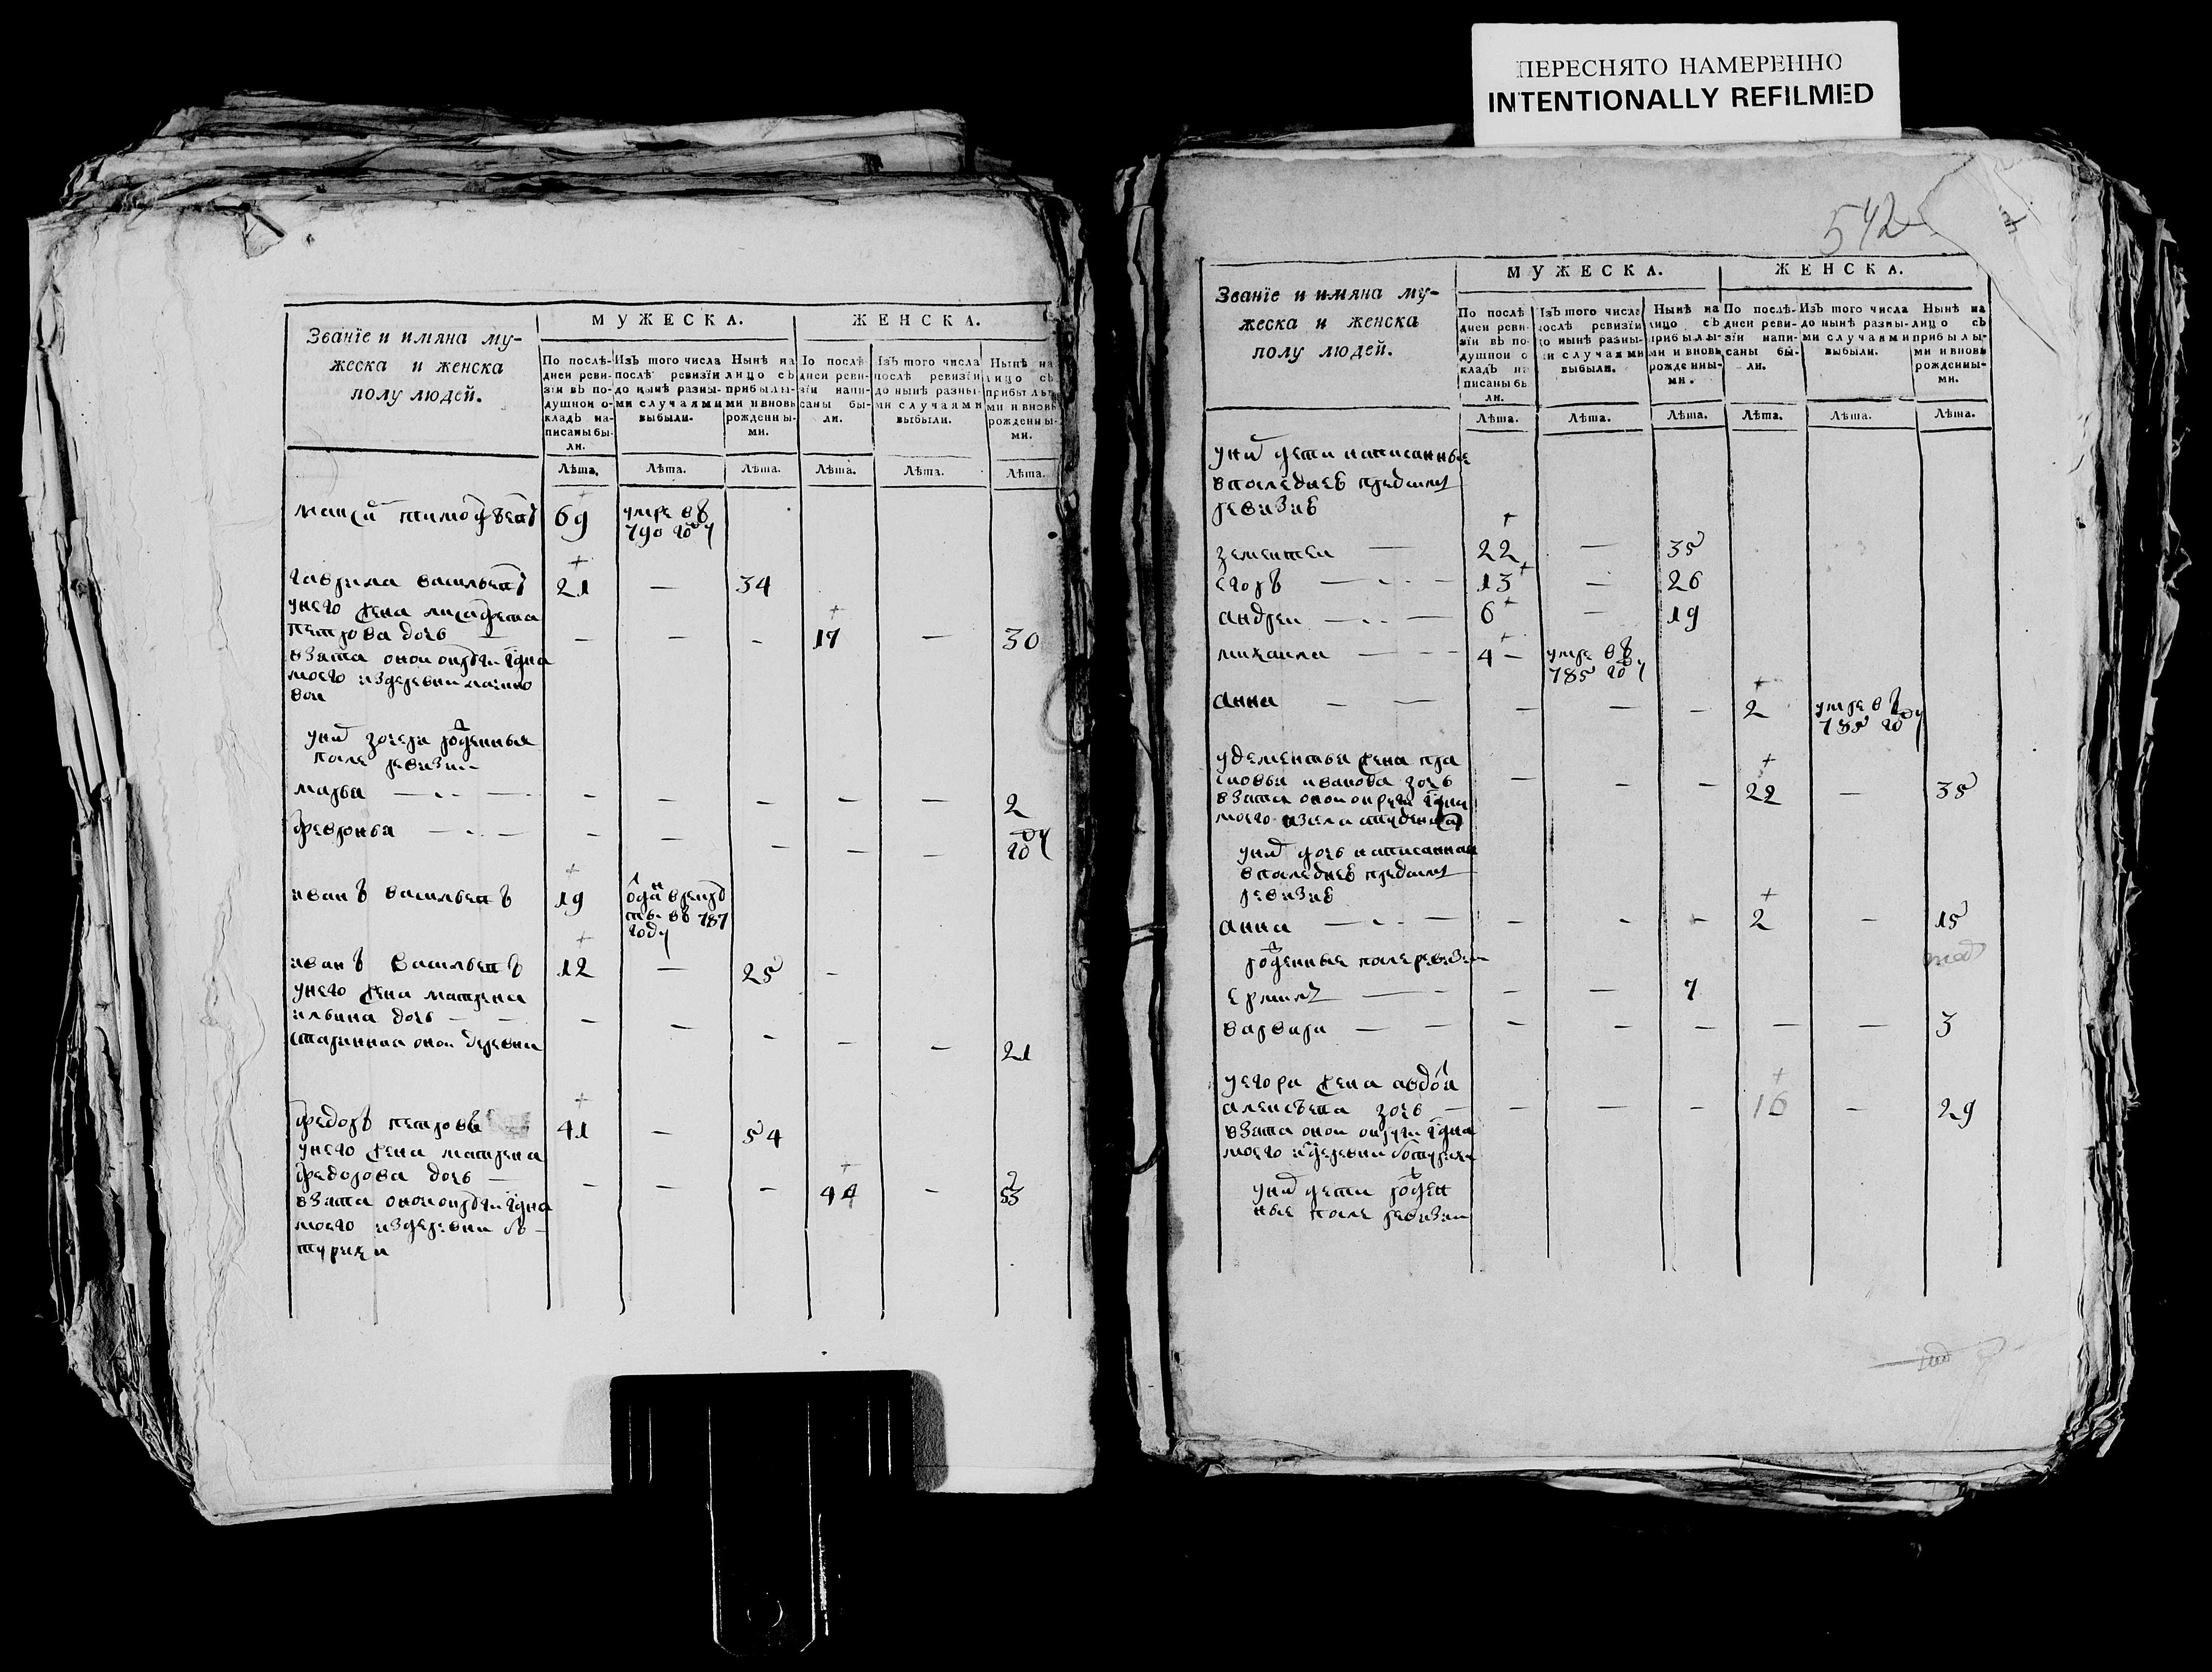 ПЕРЕСНЯТО НАМЕРЕННО
INTENTIONALLY REFILMED
Званїе и имяна му-
жеска и женска
полу людей.
МУЖЕСКА.
ЖЕНСКА.
По послѣ-
дней реви-
зїи въ по-
душной о-
кладъ на-
писаны бы-
ли.
Изъ того числа
послѣ ревизїи
до нынѣ разны-
ми случаями
выбыли.
Нынѣ на
лицо съ
прибылы-
ми и вновь
рожденны-
ми.
По послѣ-
дней реви-
зїи напи-
саны бы-
ли.
Изъ того числа
послѣ ревизїи
до нынѣ разны-
ми случаями
выбыли.
Нынѣ на
лицо съ
прибылы-
ми и вновь
рожденны-
ми.
Лѣта. Лѣта. Лѣта. Лѣта. Лѣта. Лѣта.
69 умре въ
790 году
гаврила васильевъ 21 — 34
у него жена
петрова дочь — — — 17 — 30
взята оной округи
моего из деревни
вои
у них дочери рожденныя
после ревизии
марья — — — — — 2
февронья — — — — — году
иванъ васильевъ 19 отдан в рекруты
въ 787
году
иванъ васильевъ 12 — 25 -
у него жена матрена
ильина дочь — — — — — 21
старинная оной деревни
федоръ петровъ 41 — 54
у него жена матрена
федорова дочь — — — — 44 — 53
взята оной округи
моего из деревни
542
Званїе и имяна му-
жеска и женска
полу людей.
МУЖЕСКА.
ЖЕНСКА.
По послѣ
дней реви-
зїи въ по-
душной о
кладъ на
писаны бы
ли.
Изъ того числа
послѣ ревизїи
до нынѣ разны-
ми случаями
выбыли.
Нынѣ на
лицо съ
прибылы-
ми и вновь
рожденны-
ми.
По послѣ-
дней реви-
зїи напи-
саны бы-
ли.
Изъ того числа
до нынѣ разны-
ми случаями
выбыли.
Нынѣ на
лицо съ
прибылы-
ми и вновь
рожденны-
ми.
Лѣта. Лѣта. Лѣта. Лѣта. Лѣта. Лѣта.
у них дети написанные
в последней пред сим
ревизие
дементеи — 22 — 35
егоръ — 13 — 26
андреи — 6 — 19
михаила — 4 — умре въ
785 году
анна — — — — 2 умре въ
785 году
у дементья жена пра
сковья иванова дочь — — 22 — 35
взята оной округи
моего из села
у них дочь написанная
в последней пред сим
ревизие
анна — — — — 2 — 15
рожденные после ревизии
— — — 7
варвара — — — — — — 3
у егора жена авдотья
алексѣева дочь — — — — 16 — 29
взята оной округи
моего из деревни
у них дети рожден
ные после ревизии